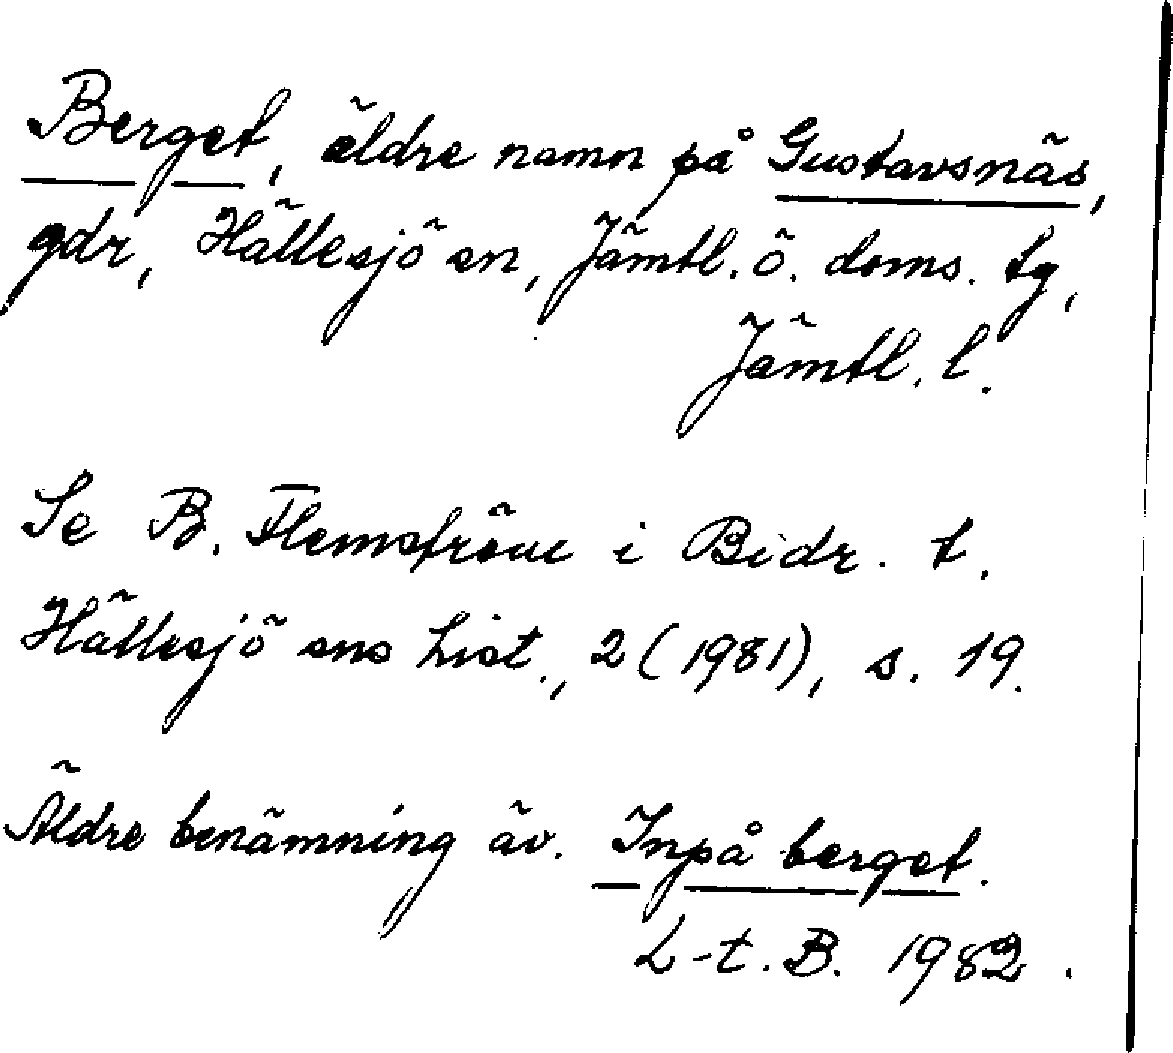 Berget, äldre namn på Gustavsnäs,
gdr, Hällesjö sn, Jämtl. ö. doms. tg,
Jämtl. l.
Se B. Flemström i Bidr. t.
Hällesjö sns hist., 2 (1981), s. 19.
Äldre benämning äv. Inpå berget.
L-t. B. 1982.